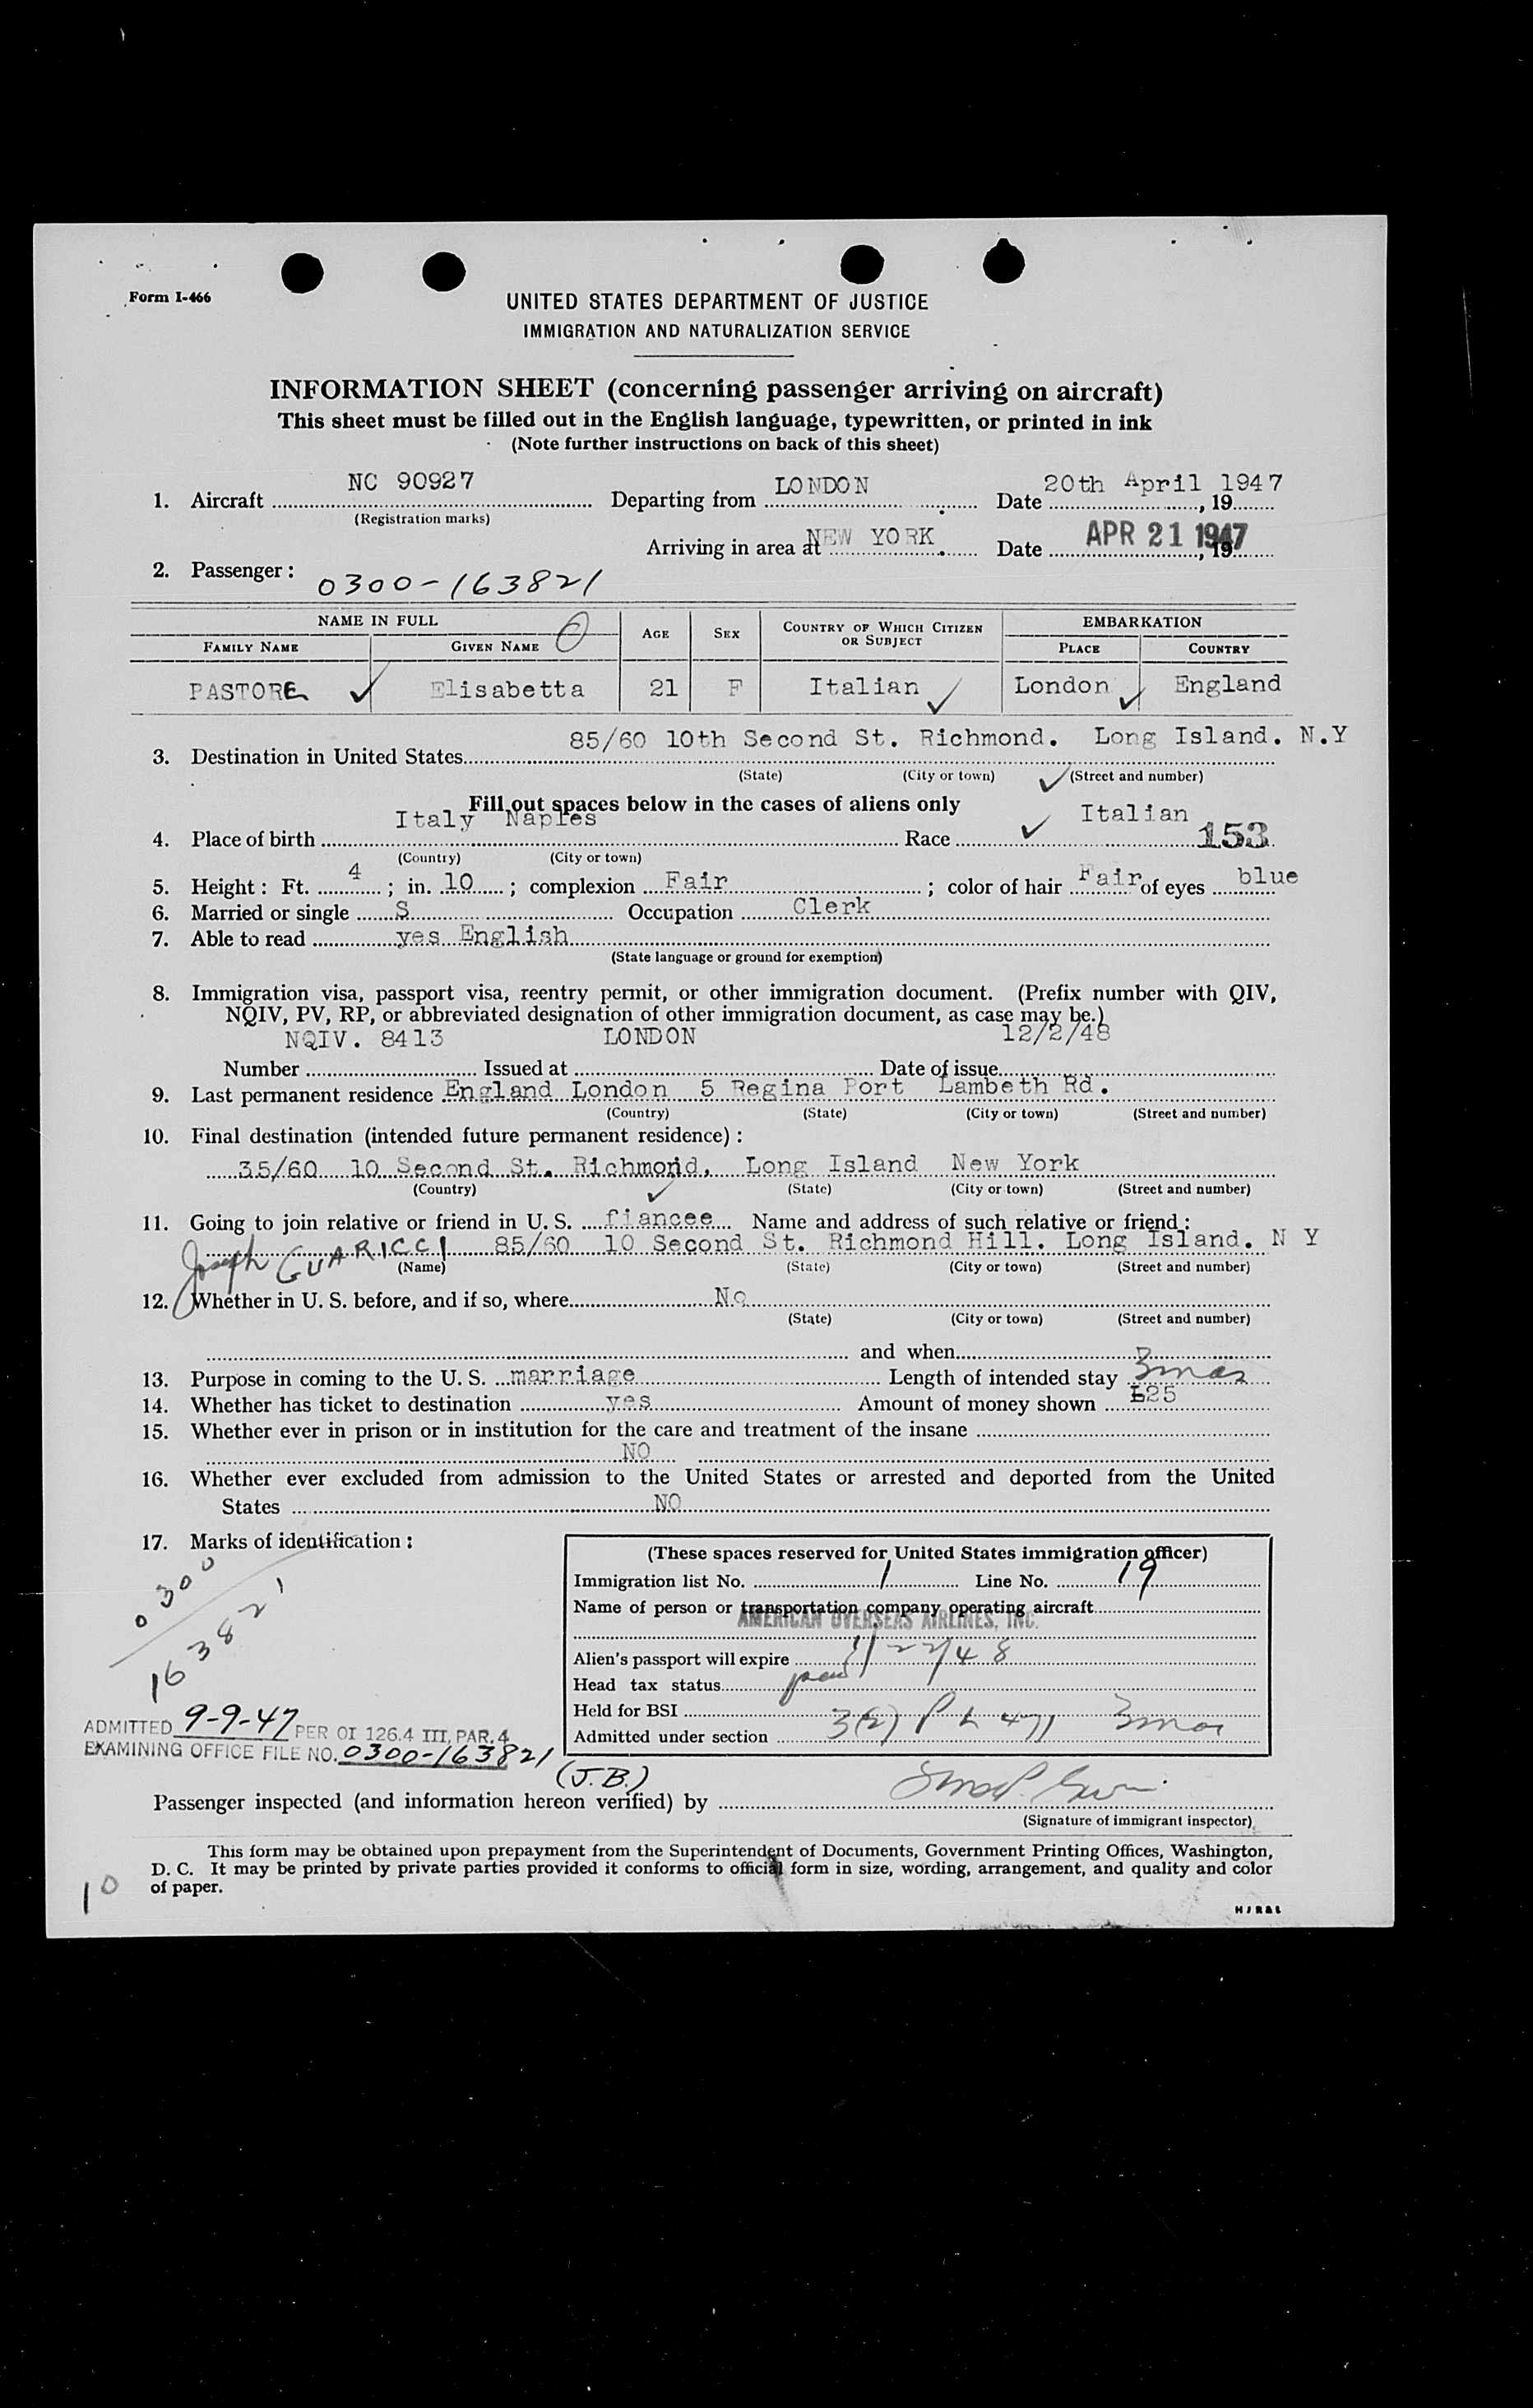 Form I-466
UNITED STATES DEPARTMENT OF JUSTICE
IMMIGRATION AND NATURALIZATION SERVICE
INFORMATION SHEET (concerning passenger arriving on aircraft)
This sheet must be filled out in the English language, typewritten, or printed in ink
(Note further instructions on back of this sheet)
1. Aircraft NC 90927 Departing from LONDON Date 20th April 1947, 19
(Registration marks)
Arriving in area at NEW YORK Date APR 21 1947, 19
2. Passenger: 0300-163821
NAME IN FULL AGE SEX COUNTRY OF WHICH CITIZEN OR SUBJECT EMBARKATION
FAMILY NAME GIVEN NAME PLACE COUNTRY
PASTORE Elisabetta 21 F Italian London England
3. Destination in United States 85/60 10th Second St. Richmond. Long Island. N.Y
(State) (City or town) (Street and number)
Fill out spaces below in the cases of aliens only
4. Place of birth Italy Naples Race Italian 153
(Country) (City or town)
5. Height: Ft. 4; in. 10; complexion Fair; color of hair Fair of eyes blue
6. Married or single S Occupation Clerk
7. Able to read yes English
(State language or ground for exemption)
8. Immigration visa, passport visa, reentry permit, or other immigration document. (Prefix number with QIV,
NQIV, PV, RP, or abbreviated designation of other immigration document, as case may be.)
Number NQIV. 8413 Issued at LONDON Date of issue 12/2/48
9. Last permanent residence England London 5 Regina Port Lambeth Rd.
(Country) (State) (City or town) (Street and number)
10. Final destination (intended future permanent residence):
35/60 10 Second St. Richmond, Long Island New York
(Country) (State) (City or town) (Street and number)
11. Going to join relative or friend in U. S. fiancee Name and address of such relative or friend:
Joseph GUARICCI 85/60 10 Second St. Richmond Hill. Long Island. N Y
(Name) (State) (City or town) (Street and number)
12. Whether in U. S. before, and if so, where No
(State) (City or town) (Street and number)
and when
13. Purpose in coming to the U. S. marriage Length of intended stay 3 mos
14. Whether has ticket to destination yes Amount of money shown £25
15. Whether ever in prison or in institution for the care and treatment of the insane
NO
16. Whether ever excluded from admission to the United States or arrested and deported from the United
States NO
17. Marks of identification:
0300
163821
(These spaces reserved for United States immigration officer)
Immigration list No. 1 Line No. 19
Name of person or transportation company operating aircraft
AMERICAN OVERSEAS AIRLINES, INC.
Alien's passport will expire 11/22/48
Head tax status
Held for BSI
Admitted under section 3(2) P L 471 3 mos
ADMITTED 9-9-47 PER OI 126.4 III, PAR. 4
EXAMINING OFFICE FILE NO. 0300-163821
(J.B.)
Passenger inspected (and information hereon verified) by
(Signature of immigrant inspector)
This form may be obtained upon prepayment from the Superintendent of Documents, Government Printing Offices, Washington,
D. C. It may be printed by private parties provided it conforms to official form in size, wording, arrangement, and quality and color
of paper.
10
H J R & L